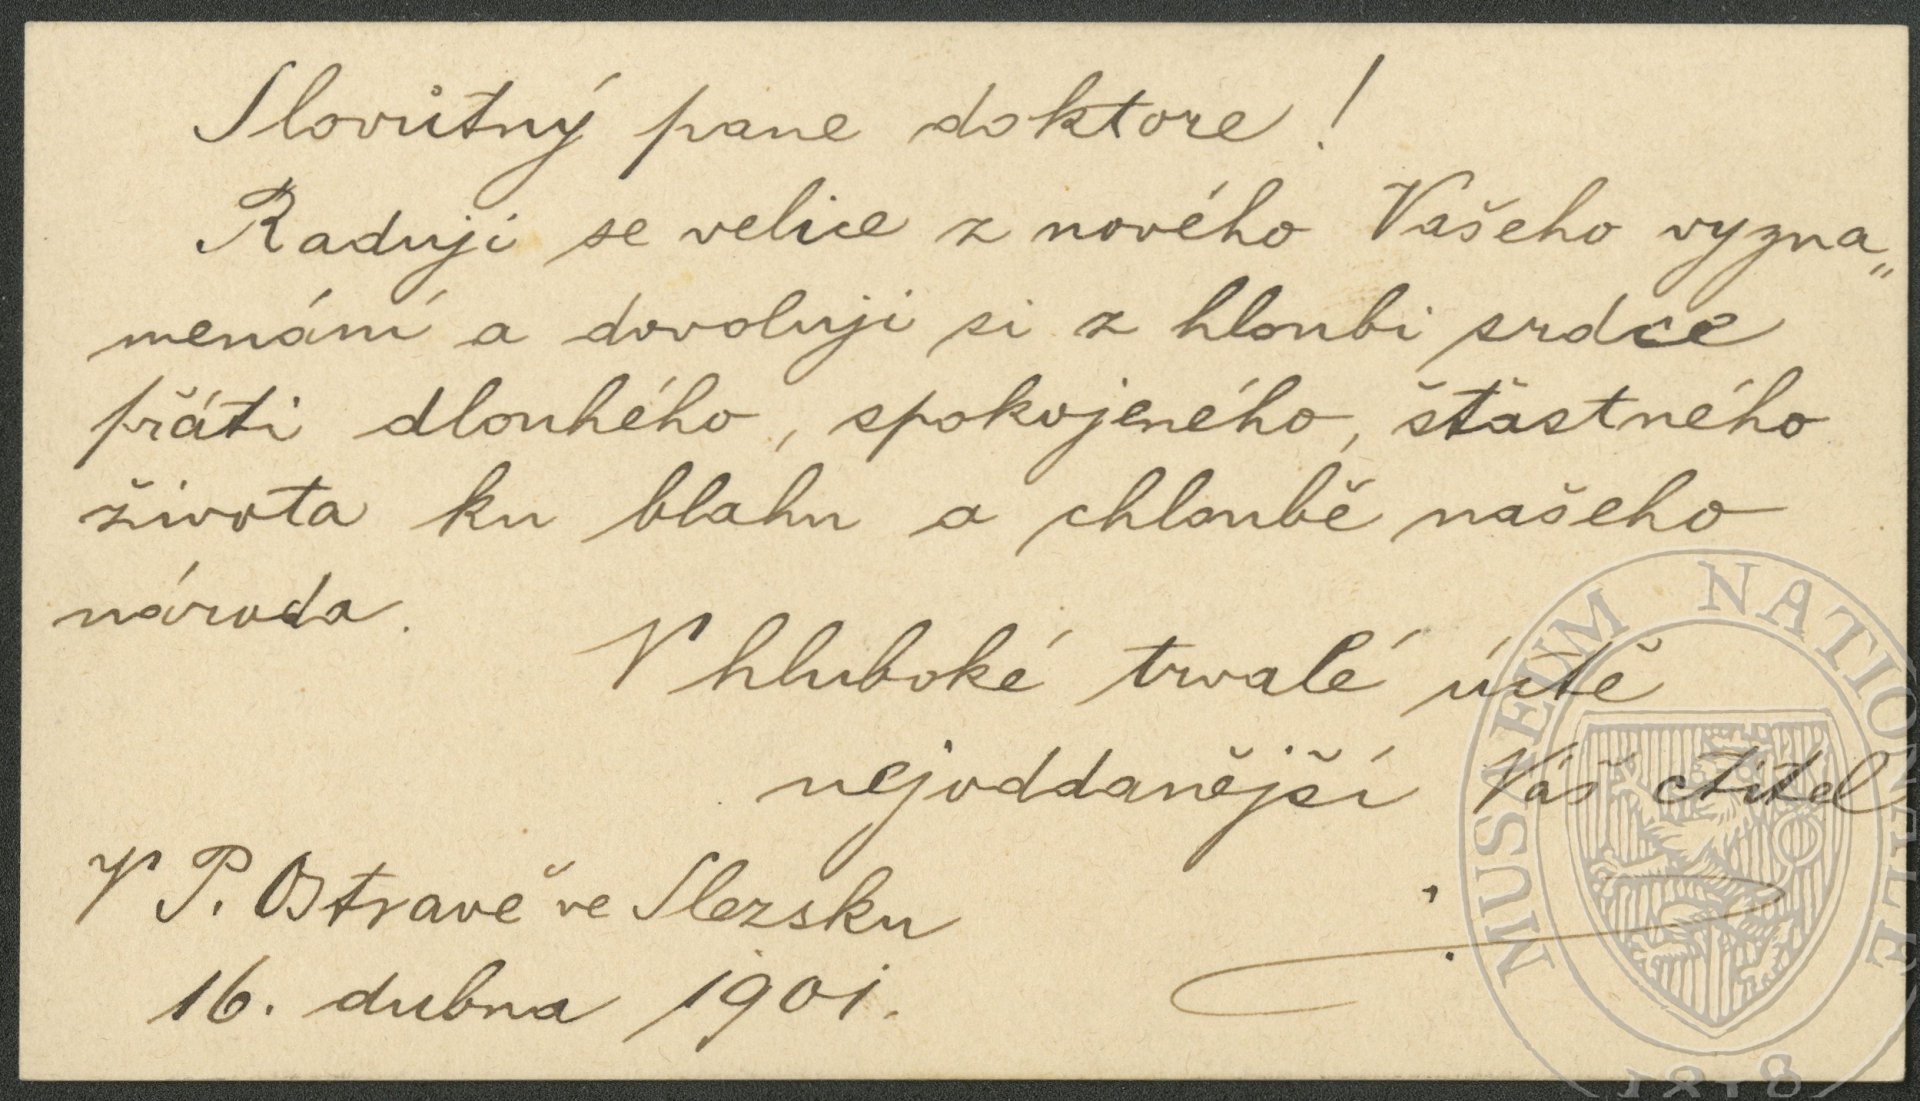 Slovutný pane doktore!
Raduji se velice z nového Vašeho vyzna„
menání a dovoluji si z hloubi srdce
přáti dlouhého, spokojeného, šťastného
života ku blahu a chloubě našeho
národa.
V hluboké trvalé úctě
nejoddanější Váš ctitel
V P. Ostravě ve Slezsku
16. dubna 1901.
MUSAEUM NATIONALE
1818